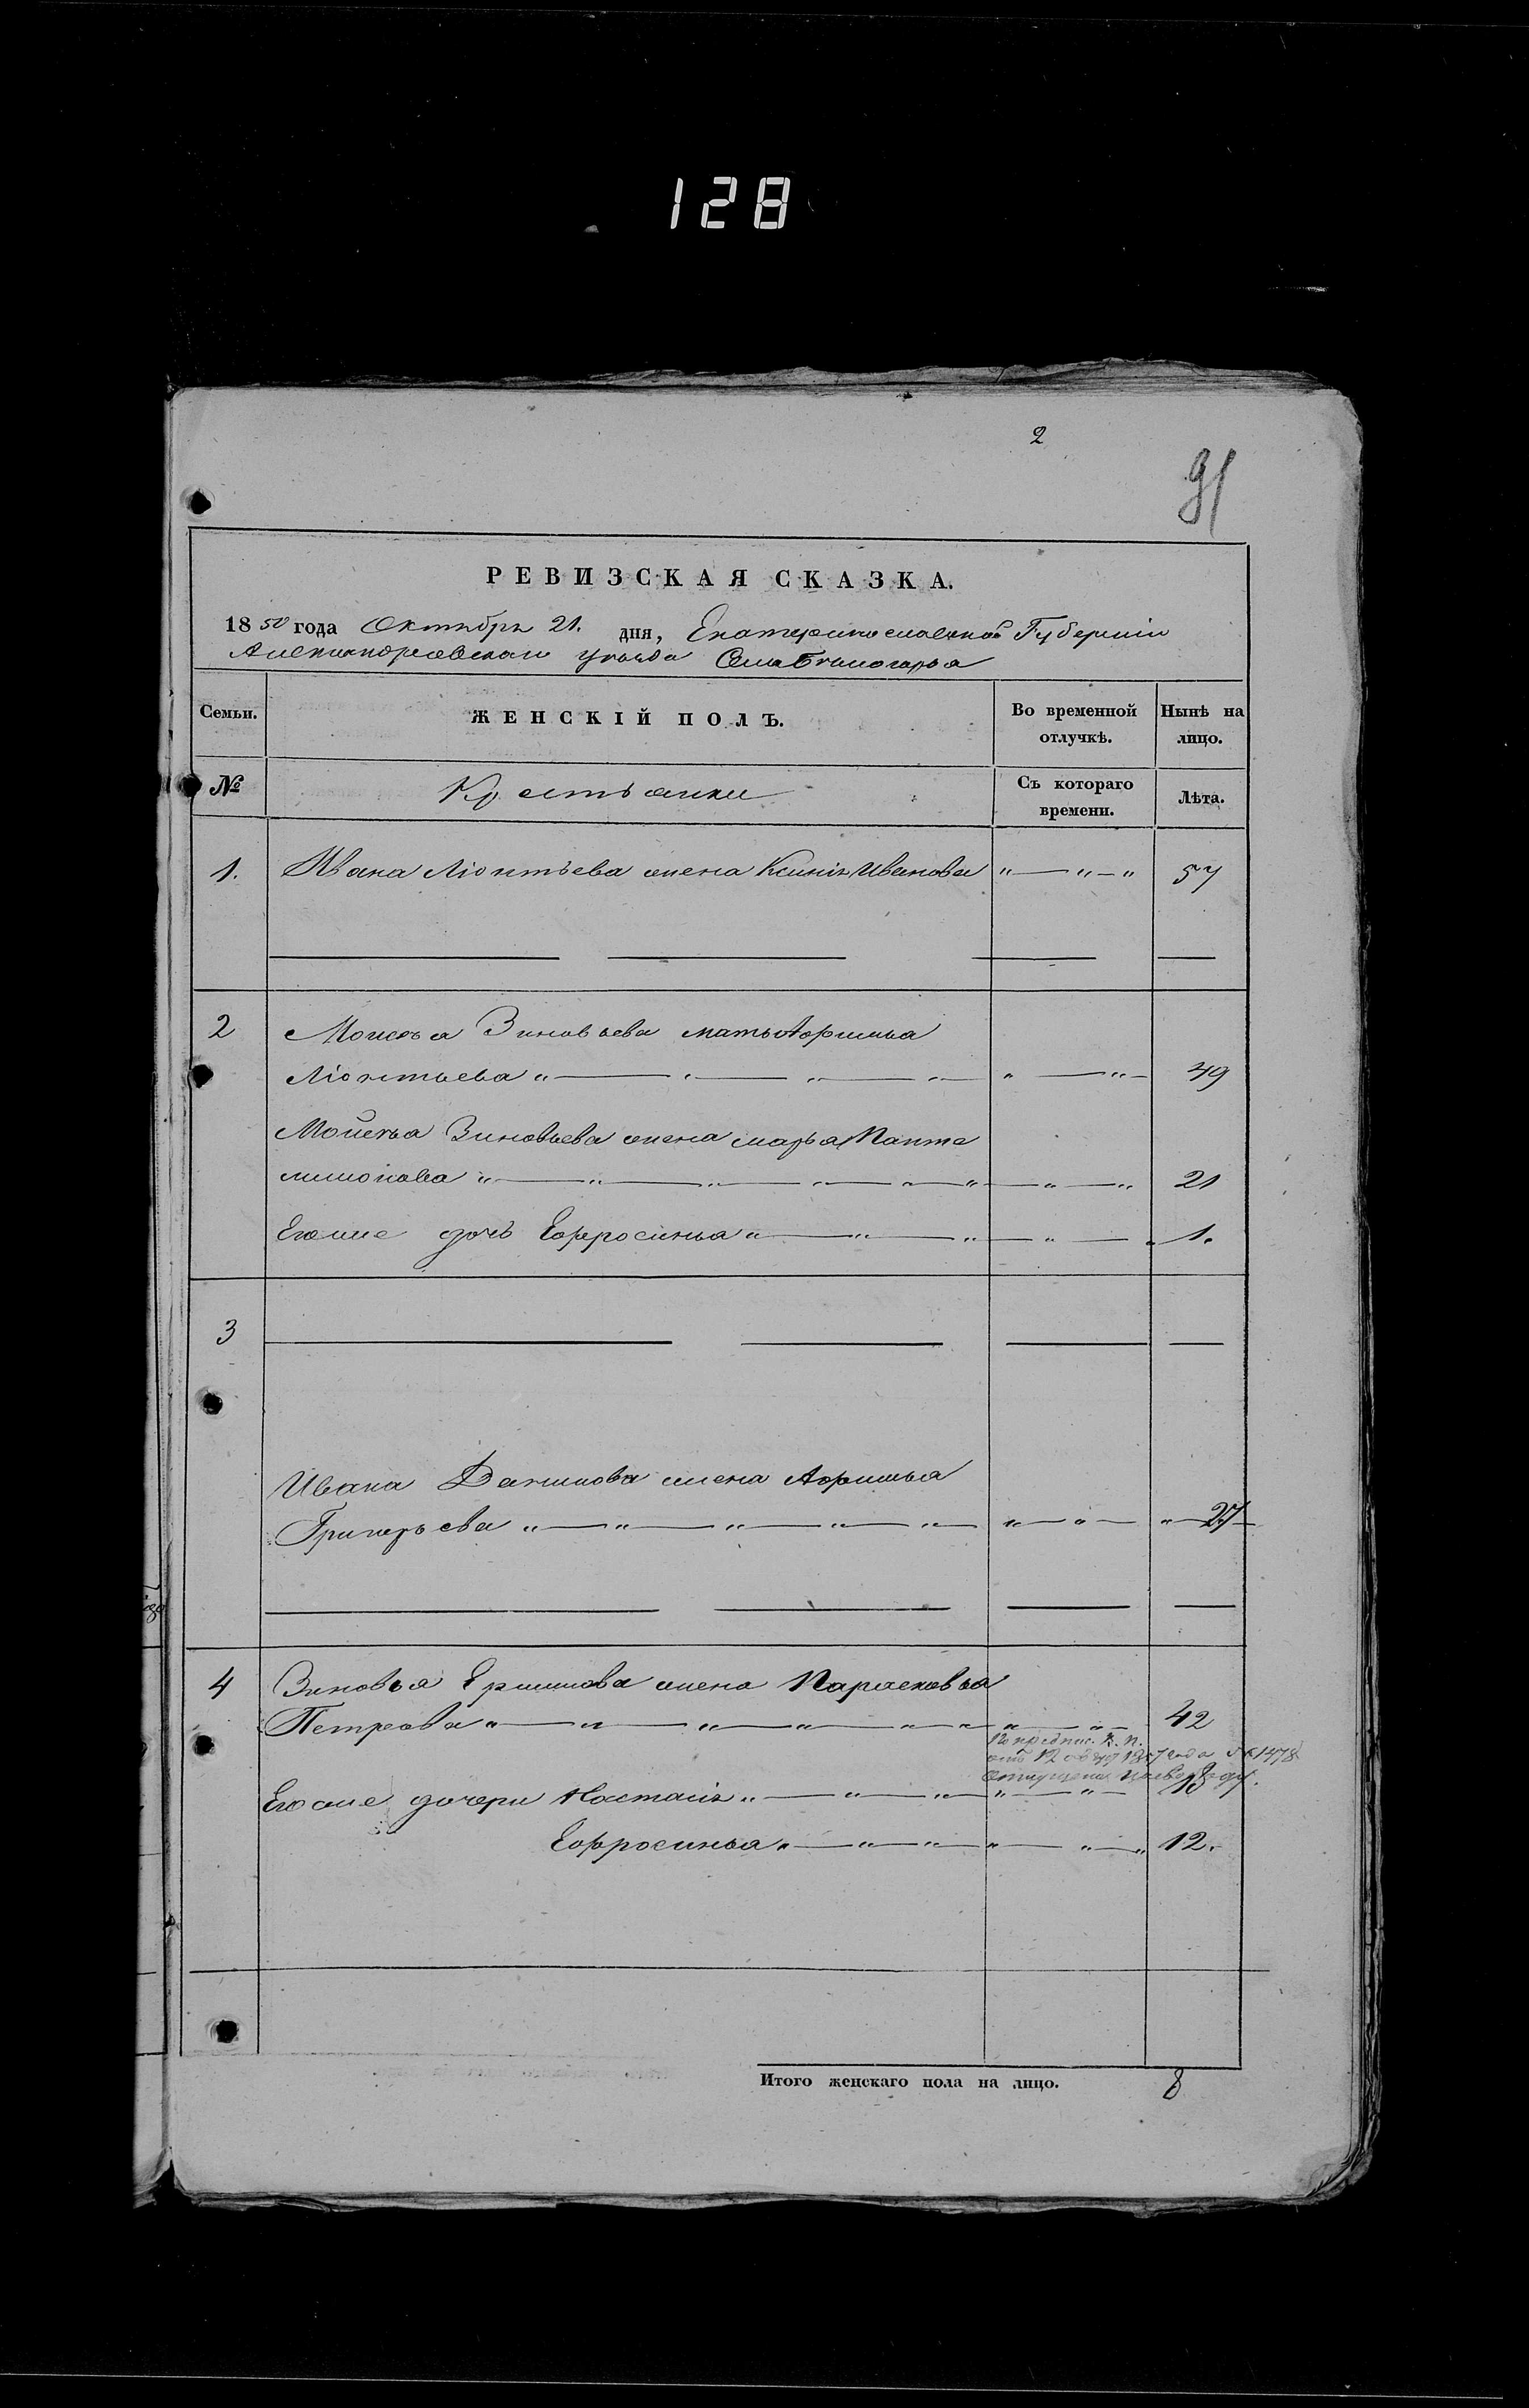 128
2
91
РЕВИЗСКАЯ СКАЗКА.
1850 года Октября 21. дня, Екатеринославской Губерніи
Александровскаго уезда Села Белогорья
Семьи. ЖЕНСКІЙ ПОЛЪ. Во временной отлучкѣ. Нынѣ на лицо.
№ Крестьянки Съ котораго времени. Лѣта.
1. Ивана Ліонтьева жена Ксинія Иванова „ — „ — „ 57
2 Моисея Зиновьева мать Афимья
Ліонтьева „ — „ — „ — „ — „ — „ — 49
Моисея Зиновьева жена Марья Панте
лимонова „ — „ — „ — „ — „ — „ — „ — „ 21
Егоже дочь Ефросинья „ — „ — „ — „ — 1.
3
Ивана жена Афимья
Григорьева „ — „ — „ — „ — „ — „ — „ — „ — 27
4 Зиновья жена Парасковья
Петрова „ — „ — „ — „ — „ — „ — „ — „ — 42
По предпис. К. П.
отъ 12 1857 года № 1478
отпущена
Егоже дочери Настасія „ — „ — „ — „ — „ —
Ефросинья „ — „ — „ — „ — „ — „ 12.
Итого женскаго пола на лицо. 8